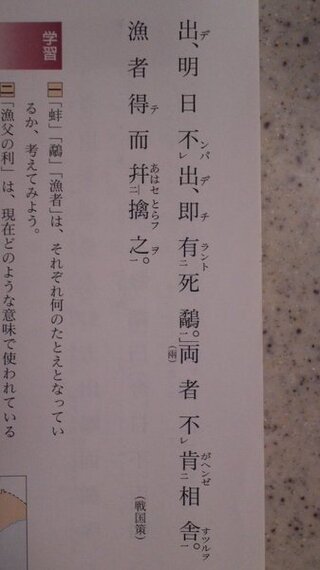 出デ、明日不レンバ出デ、即チ有ラント二死鷸一。」両(兩)者不レ肯がヘンゼ二相舎すツルヲ一。
漁者得テ而幷あはセ二擒とらフ之ヲ一。
(戦国策)
学習
一 「蚌」「鷸」「漁者」は、それぞれ何のたとえとなってい
るか、考えてみよう。
二 「漁父の利」は、現在どのような意味で使われている